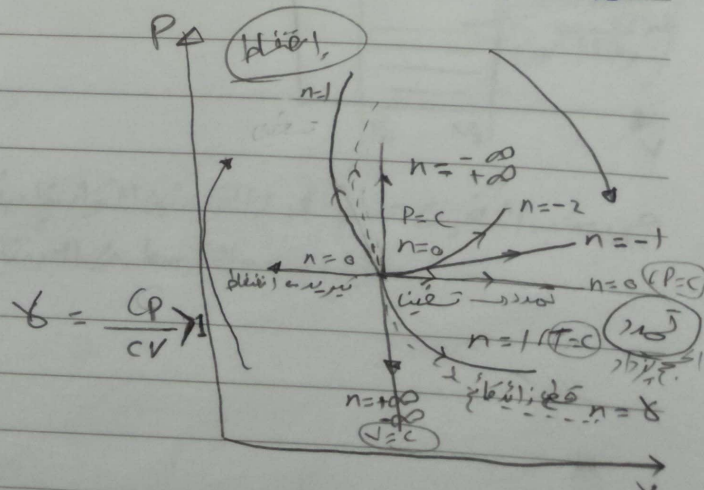 P
انضغاط
n=1
n = -∞
+∞
P=C
n=0
n=-2
n=-1
n=0
تبريد انضغاط
تمدد تسخين
n=0 (P=C)
تمدد
γ = Cp / Cv > 1
n=1 (T=C)
n=+∞
-∞
n=γ
V=C